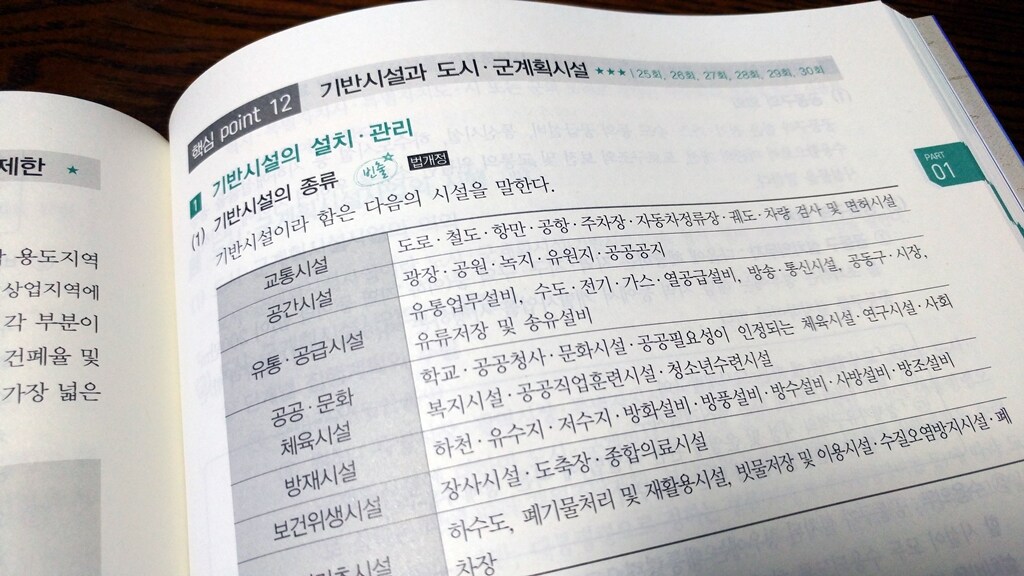 제한 ★
용도지역
상업지역에
각 부분이
건폐율 및
가장 넓은
핵심 point 12 기반시설과 도시·군계획시설 ★★★ | 25회, 26회, 27회, 28회, 29회, 30회
PART
01
1 기반시설의 설치·관리
(1) 기반시설의 종류 빈출 법개정
기반시설이라 함은 다음의 시설을 말한다.
교통시설 도로·철도·항만·공항·주차장·자동차정류장·궤도·차량 검사 및 면허시설
공간시설 광장·공원·녹지·유원지·공공공지
유통·공급시설 유통업무설비, 수도·전기·가스·열공급설비, 방송·통신시설, 공동구·시장,
유류저장 및 송유설비
공공·문화
체육시설
학교·공공청사·문화시설·공공필요성이 인정되는 체육시설·연구시설·사회
복지시설·공공직업훈련시설·청소년수련시설
방재시설 하천·유수지·저수지·방화설비·방풍설비·방수설비·사방설비·방조설비
보건위생시설 장사시설·도축장·종합의료시설
하수도, 폐기물처리 및 재활용시설, 빗물저장 및 이용시설·수질오염방지시설·폐
차장